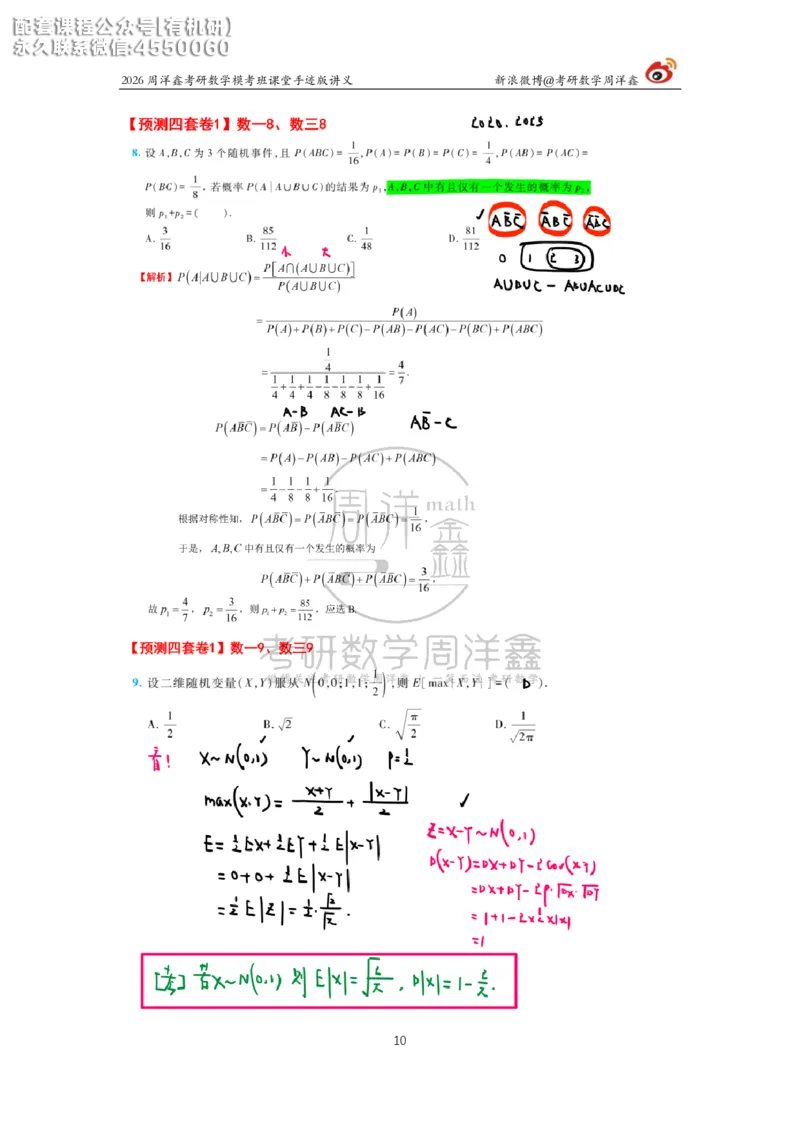 配套课程公众号[有机研)
永久联系微信:4550060
2026周洋鑫考研数学模考班课堂手迹版讲义 新浪微博@考研数学周洋鑫
【预测四套卷1】数一8、数三8 2020. 2025
8. 设 A,B,C 为 3 个随机事件,且 P(ABC)= 1/16 ,P(A)=P(B)=P(C)= 1/4 ,P(AB)=P(AC)=
P(BC)= 1/8 ，若概率 P(A|A∪B∪C)的结果为 p₁,A,B,C中有且仅有一个发生的概率为 p₂,
AB̄C̄ ĀBC̄ ĀB̄C
则 p₁+p₂=( ).
A. 3/16 B. 85/112 C. 1/48 D. 81/112
小 大
0 1 2 3
A∪B∪C - AB∪AC∪BC
【解析】P(A|A∪B∪C)= P[A∩(A∪B∪C)] / P(A∪B∪C)
= P(A) / P(A)+P(B)+P(C)−P(AB)−P(AC)−P(BC)+P(ABC)
= 1/4 / 1/4+1/4+1/4−1/8−1/8−1/8+1/16 = 4/7 .
A-B AC-B
P(AB̄C̄)=P(AB̄)−P(AB̄C) AB̄-C
=P(A)−P(AB)−P(AC)+P(ABC)
= 1/4 − 1/8 − 1/8 + 1/16 .
根据对称性知，P(AB̄C̄)=P(ĀBC̄)=P(ĀB̄C)= 1/16 ，
于是，A,B,C 中有且仅有一个发生的概率为
P(AB̄C̄)+P(ĀBC̄)+P(ĀB̄C)= 3/16 ，
故 p₁= 4/7 ，p₂= 3/16 ，则 p₁+p₂= 85/112 ，应选 B.
周洋鑫 math
考研数学周洋鑫
【预测四套卷1】数一9、数三9
9. 设二维随机变量(X,Y)服从 N(0,0;1,1; 1/2) ,则 E[max{X,Y}]=( D ).
A. 1/2 B. √2 C. √(π/2) D. 1/√(2π)
X~N(0,1) Y~N(0,1) ρ=1/2
max(X,Y)= (X+Y)/2 + |X-Y|/2
Z=X-Y~N(0,1)
E= 1/2 EX+ 1/2 EY+ 1/2 E|X-Y|
D(X-Y)=DX+DY-2Cov(X,Y)
=0+0+ 1/2 E|X-Y|
=DX+DY-2ρ·√DX·√DY
= 1/2 E|Z|= 1/2 · √2/√π .
=1+1-2×1/2×1×1
=1
若X~N(0,1) 则 E|X|=√(2/π) , D|X|=1- 2/π .
10